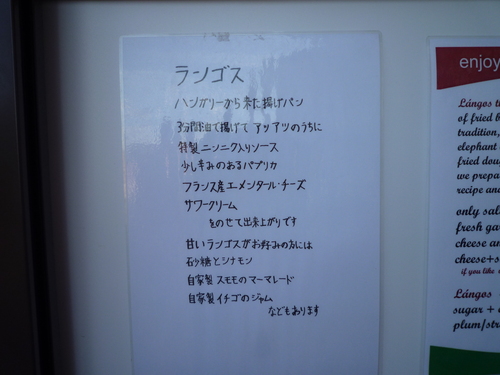 ランゴス
ハンガリーから来た揚げパン
3分間油で揚げて アツアツのうちに
特製ニンニク入りソース
少し辛みのあるパプリカ
フランス産エメンタール・チーズ
サワークリーム
をのせて出来上がりです
甘いランゴスがお好みの方には
砂糖とシナモン
自家製スモモのマーマレード
自家製イチゴのジャム
などもあります
enjoy
Lángos
of fried
tradition,
elephant
fried
we
recipe
only
fresh
cheese
cheese+
if you like
Lángos
sugar +
plum/